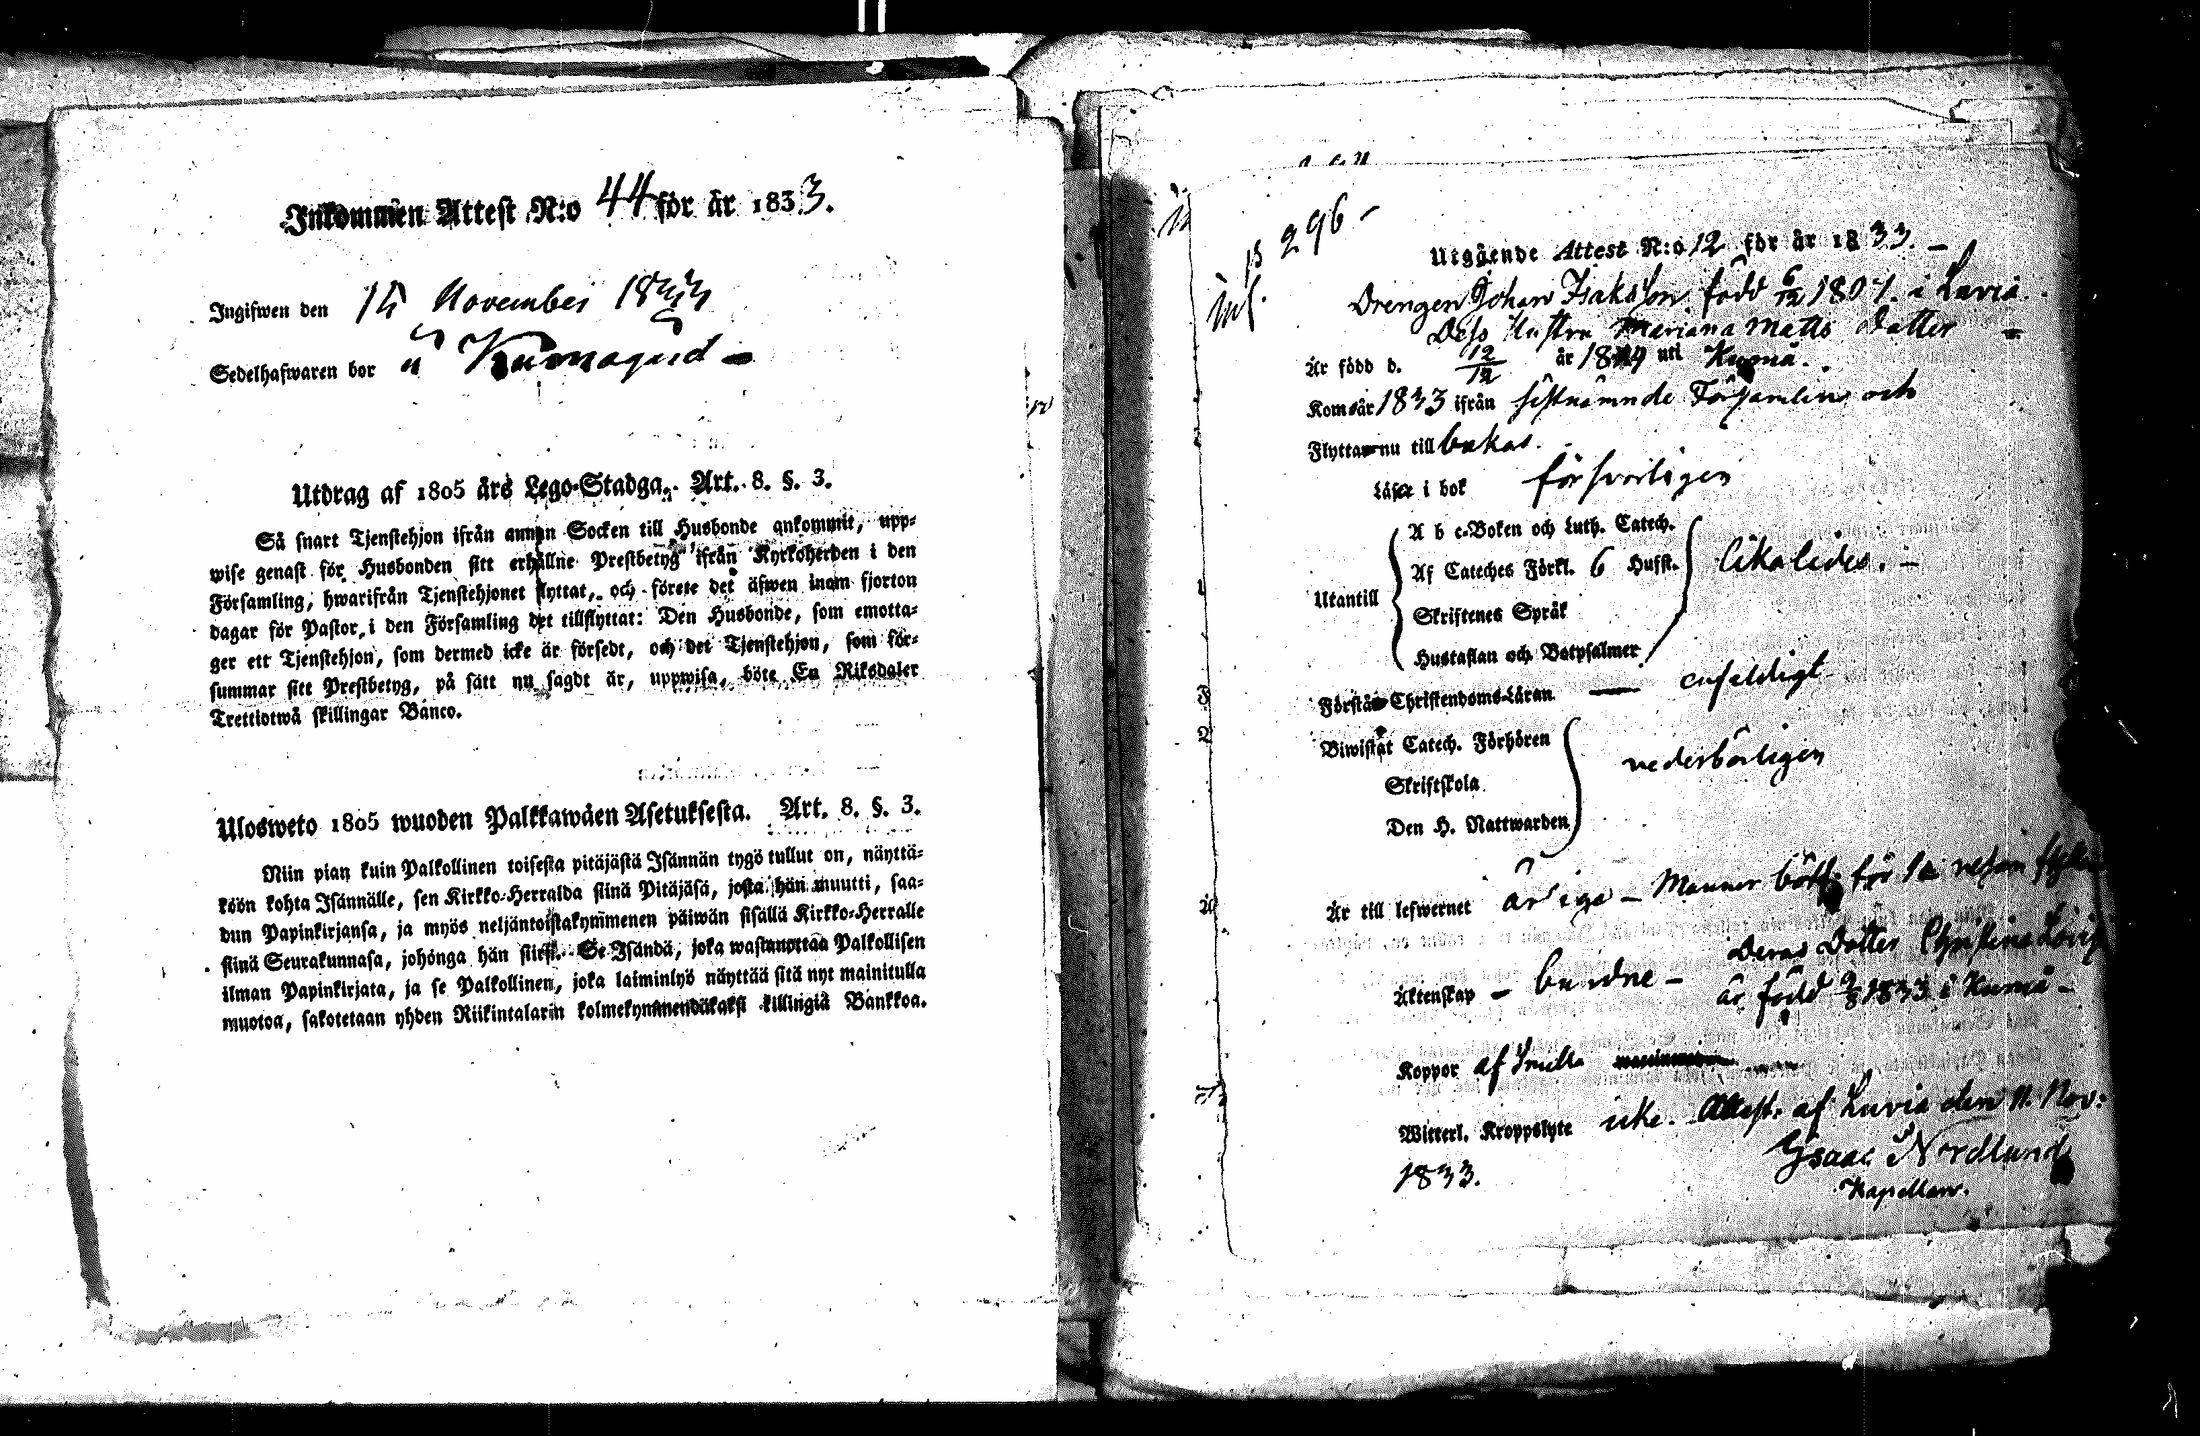 Inkommen Attest N:o 44 för år 1833.
Ingifwen den 15 November 1833
Sedelhafwaren bor å Kumogård
Utdrag af 1805 års Lego-Stadga. Art. 8. §. 3.
Så snart Tjenstehjon ifrån annan Socken till Husbonde ankommit, upp-
wise genast för Husbonden sitt erhållne Prestbetyg ifrån Kyrkoherden i den
Församling, hwarifrån Tjenstehjonet flyttat, och förete det äfwen inom fjorton
dagar för Pastor i den Församling det tillflyttat: Den Husbonde, som emotta-
ger ett Tjenstehjon, som dermed icke är försedt, och det Tjenstehjon, som för-
summar sitt Prestbetyg, på sätt nu sagdt är, uppwisa, böte En Riksdaler
Trettiotwå skillingar Banco.
Ulosweto 1805 wuoden Palkkawäen Asetuksesta. Art. 8. §. 3.
Niin pian kuin Palkollinen toisesta pitäjästä Isännän tygö tullut on, näyttä-
köön kohta Isännälle, sen Kirkko-Herralda siinä Pitäjäsä, josta hän muutti, saa-
dun Papinkirjansa, ja myös neljäntoistakymmenen päiwän sisällä Kirkko-Herralle
siinä Seurakunnasa, johonga hän siirsi. Se Isändä, joka wastanottaa Palkollisen
ilman Papinkirjata, ja se Palkollinen, joka laiminlyö näyttää sitä nyt mainitulla
muotoa, sakotetaan yhden Riikintalarin kolmekymmendäkaksi killingiä Bankkoa.
p 296
Utgående Attest N:o 12 för år 1833.
Drengen Johan Isaksson född 6/12 1807 i Luvia.
Dess Hustru Mariana Matts dotter
Är född d. 12/12 år 1809 uti Kumo.
Kom år 1833 ifrån sistnämnde Församling och
Flytta nu till bakas.
Läser i bok försvarligen
A b c-Boken och Luth. Catech.
Af Cateches Förkl. 6 Hufst. likaledes.
Utantill
Skriftenes Språk
Hustaflan och Botpsalmer
Förstå Christendoms-Läran enfaldigt
Biwistat Catech. Förhören
vederbörligen
Skriftskola
Den H. Nattwarden
Är till lefwernet ärliga – Mannen bött för
Deras Dotter Christina Lovis
Äktenskap – bundne –
är född 9/8 1833 i Kumo –
Koppor af Smitta
Witterl. Kroppslyte icke. Attest. af Luvia den 11. Nov:
1833. Isaac Nordlund
Kapellan.